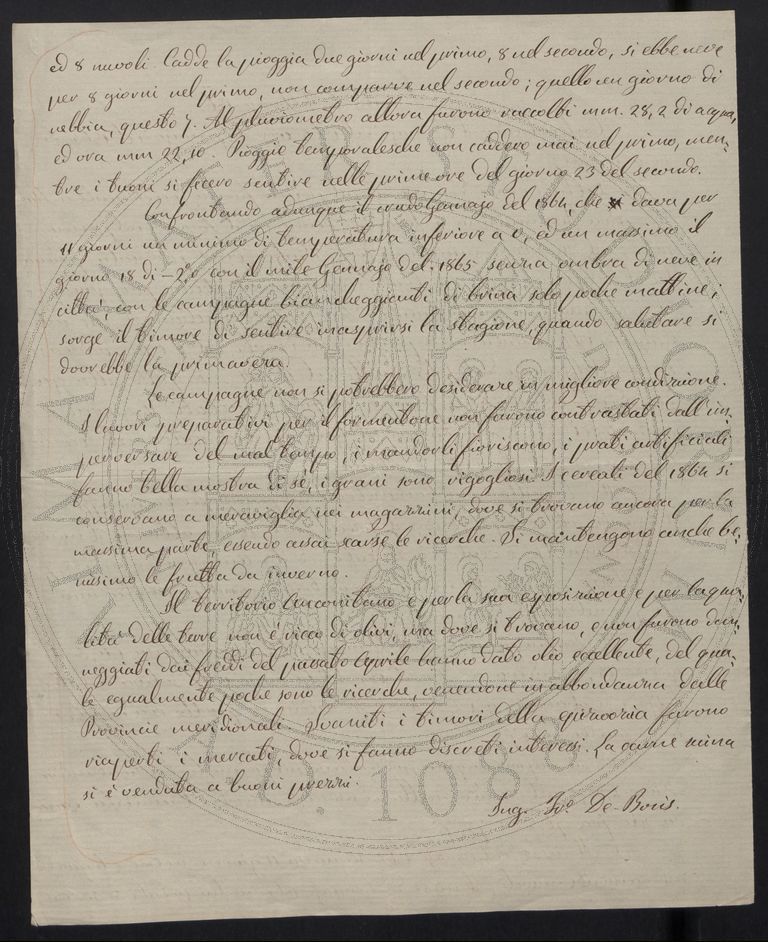 ed 8 nuvoli. Cadde la pioggia due giorni nel primo, 8 nel secondo, si ebbe neve
per 8 giorni nel primo, non comparve nel secondo; quello un giorno di
nebbia, questo 7. Al pluviometro allora furono raccolti mm. 28,2 di acqua,
ed ora mm 22,10. Pioggie temporalesche non caddero mai nel primo, men-
tre i tuoni si fecero sentire nelle prime ore del giorno 23 del secondo.
Confrontando adunque il crudo Gennajo del 1864, che dava per
11 giorni un minimo di temperatura inferiore a 0, ed un massimo il
giorno 18 di -2,0 con il mite Gennajo del 1865 senza ombra di neve in
città, con le campagne biancheggianti di brina solo poche mattine;
sorge il timore di sentire inasprirsi la stagione, quando salutare si
dovrebbe la primavera.
Le campagne non si potrebbero desiderare in migliore condizione.
I lavori preparativi per il formentone non furono contrastati dall'im-
perversare del mal tempo, i mandorli fioriscono, i prati artificiali
fanno bella mostra di sé, i grani sono rigogliosi. I cereali del 1864 si
conservano a meraviglia nei magazzini, dove si trovano ancora per la
massima parte, essendo assai scarse le ricerche. Si mantengono anche be-
nissimo le frutta da inverno.
Il territorio Anconitano e per la sua esposizione e per la qua-
lità delle terre non è ricco di olivi, ma dove si trovano, e non furono dan-
neggiati dai freddi del passato Aprile hanno dato olio eccellente, del qua-
le egualmente poche sono le ricerche, venendone in abbondanza dalle
Provincie meridionali. Svaniti i timori della furono
riaperti i mercati, dove si fanno discreti interessi. La carne suina
si è venduta a buoni prezzi.
Ing. Fr.o De Bosis.
SIGILLUM
ALMA MATER STUDIORUM
A.D. 1088